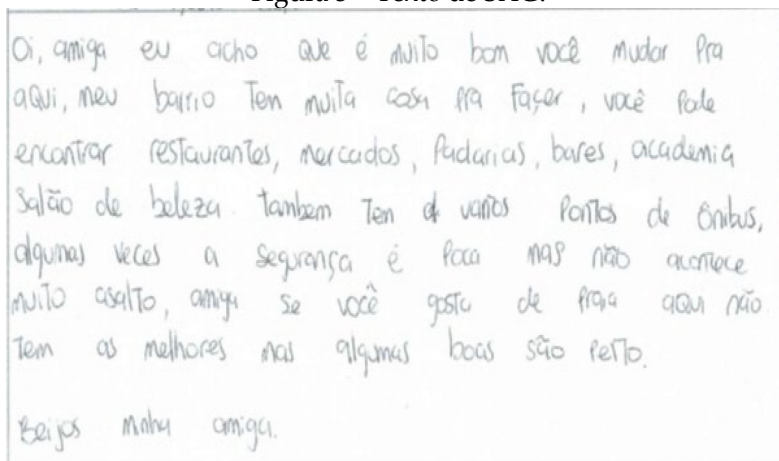 Oi, amiga eu acho que é muito bom você mudar pra
aqui, meu bairro Ten muita cosa pra Façer, você Pode
encontrar restaurantes, mercados, Padarias, bares, academia
Salão de beleza. tambem Ten varios Pontos de Ônibus,
algumas veces a segurança é Poca mas não acontece
muito asalto, amiga se você gosta de Praia aqui não
Tem as melhores mas algumas boas são Perto.
Beijos minha amiga.